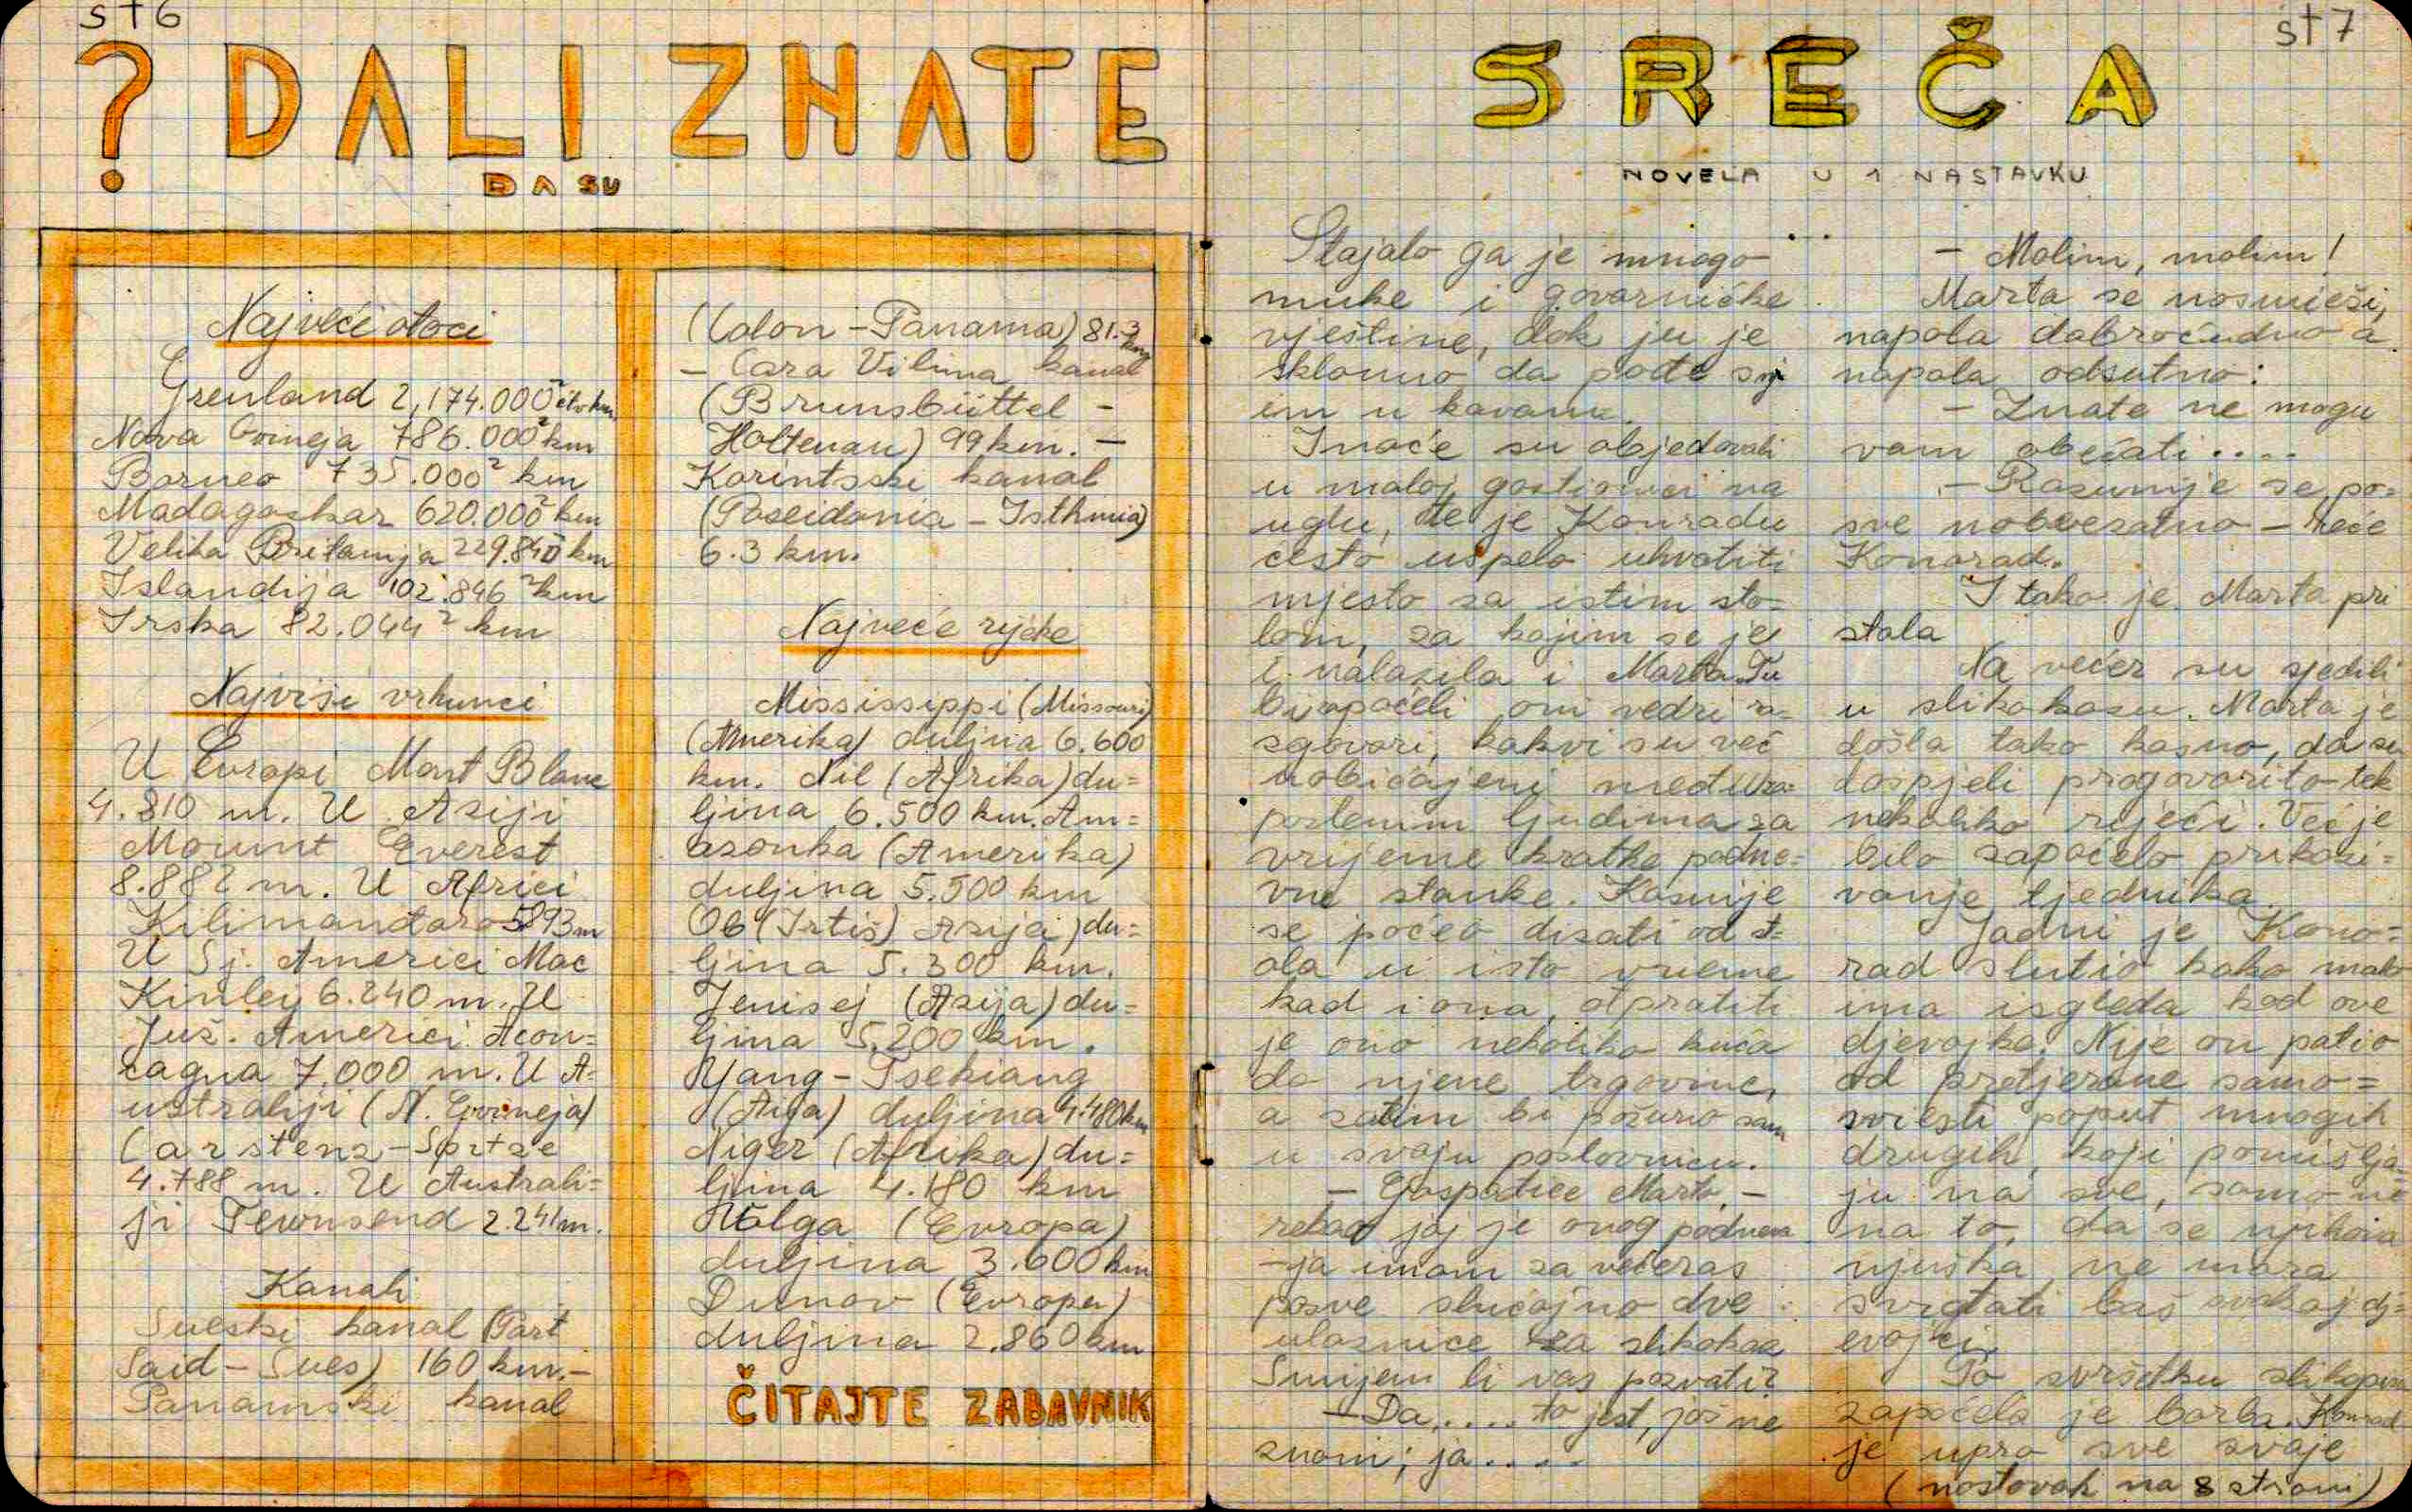 st 6
? DALI ZNATE
DA SU
Najveći otoci
Grenland 2,174.000² čtv km
Nova Gvineja 786.000² km
Borneo 735.000² km
Madagaskar 620.000² km
Velika Britanija 229.840² km
Islandija 102.846² km
Irska 82.044² km
Najviši vrhunci
U Evropi Mont Blanc
4.810 m. U Aziji
Mount Everest
8.882 m. U Africi
Kilimandžaro 5893 m
U Sj. Americi Mac
Kinley 6.240 m. U
Juž. Americi Acon=
cagua 7.000 m. U A=
ustraliji (N. Gvineja)
Carstenz-Spitze
4.788 m. U Australi=
ji Tewnsend 2.241 m.
Kanali
Sueski kanal (Port
Said - Sues) 160 km. -
Panamski kanal
(Colon - Panama) 81.3 km
- Cara Vilima kanal
(Brunsbüttel -
Holtenau) 99 km. -
Korintski kanal
(Poseidonia - Isthmia)
6.3 km.
Najveće rijeke
Mississippi (Missouri)
(Amerika) duljina 6.600
km. Nil (Afrika) du=
ljina 6.500 km. Am=
azonka (Amerika)
duljina 5.500 km
Ob (Irtiš) Azija) du=
ljina 5.300 km.
Jenisej (Azija) du=
ljina 5.200 km.
Yang-Tsekiang
(Azija) duljina 4.480 km
Niger (Afrika) du=
ljina 4.180 km
Wolga (Evropa)
duljina 3.600 km
Dunav (Evropa)
duljina 2.860 km
ČITAJTE ZABAVNIK
št 7
SREČA
NOVELA U 1 NASTAVKU
Stajalo ga je mnogo
muke i govorničke
vještine, dok ju je
sklonuo da pođe s nj
im u kavanu.
Inače su objedovali
u maloj gostionici na
uglu, te je Konradu
često uspelo uhvatiti
mjesto za istim sto=
lom, za kojim se je
i nalazila i Marta. Tu
bi započeli oni vedri ra=
zgovori, kakvi su već
uobičajeni među za=
poslenim ljudima za
vrijeme kratke podne=
vne stanke. Kasnije
se počeo dizati od st=
ola u isto vrieme
kad i ona, otpratiti
je ono nekoliko kuća
do njene trgovine,
a zatim bi požurio sam
u svoju poslovnicu.
- Gospođice Marto, -
rekao joj je onog podneva
- ja imam za večeras
posve slučajno dve
ulaznice za slikokaz
Smijem li vas pozvati?
- Da,.... to jest, još ne
znam; ja....
- Molim, molim!
Marta se nasmieši,
napola dobroćudno a
napola odsutno:
- Znate ne mogu
vam obećati....
- Razumije se, po=
sve neobvezatno - reče
Konorad.
I tako je Marta pri
stala
Na večer su sjedili
u slikokazu. Marta je
došla tako kasno, da su
dospjeli progovorito tek
nekoliko riječi. Već je
bilo započelo prikazi=
vanje tjednika.
Jadni je Kono=
rad slutio kako malo
ima izgleda kod ove
djevojke. Nije on patio
od pretjerane samo=
sviesti poput mnogih
drugih, koji pomišlja=
ju na sve, samo ne
na to, da se njihova
njuška ne mora
sviđati baš svakoj dj=
evojci.
Po svršetku slikopisa
započela je borba. Konrad
je upro sve svoje
(nastavak na 8 strani)